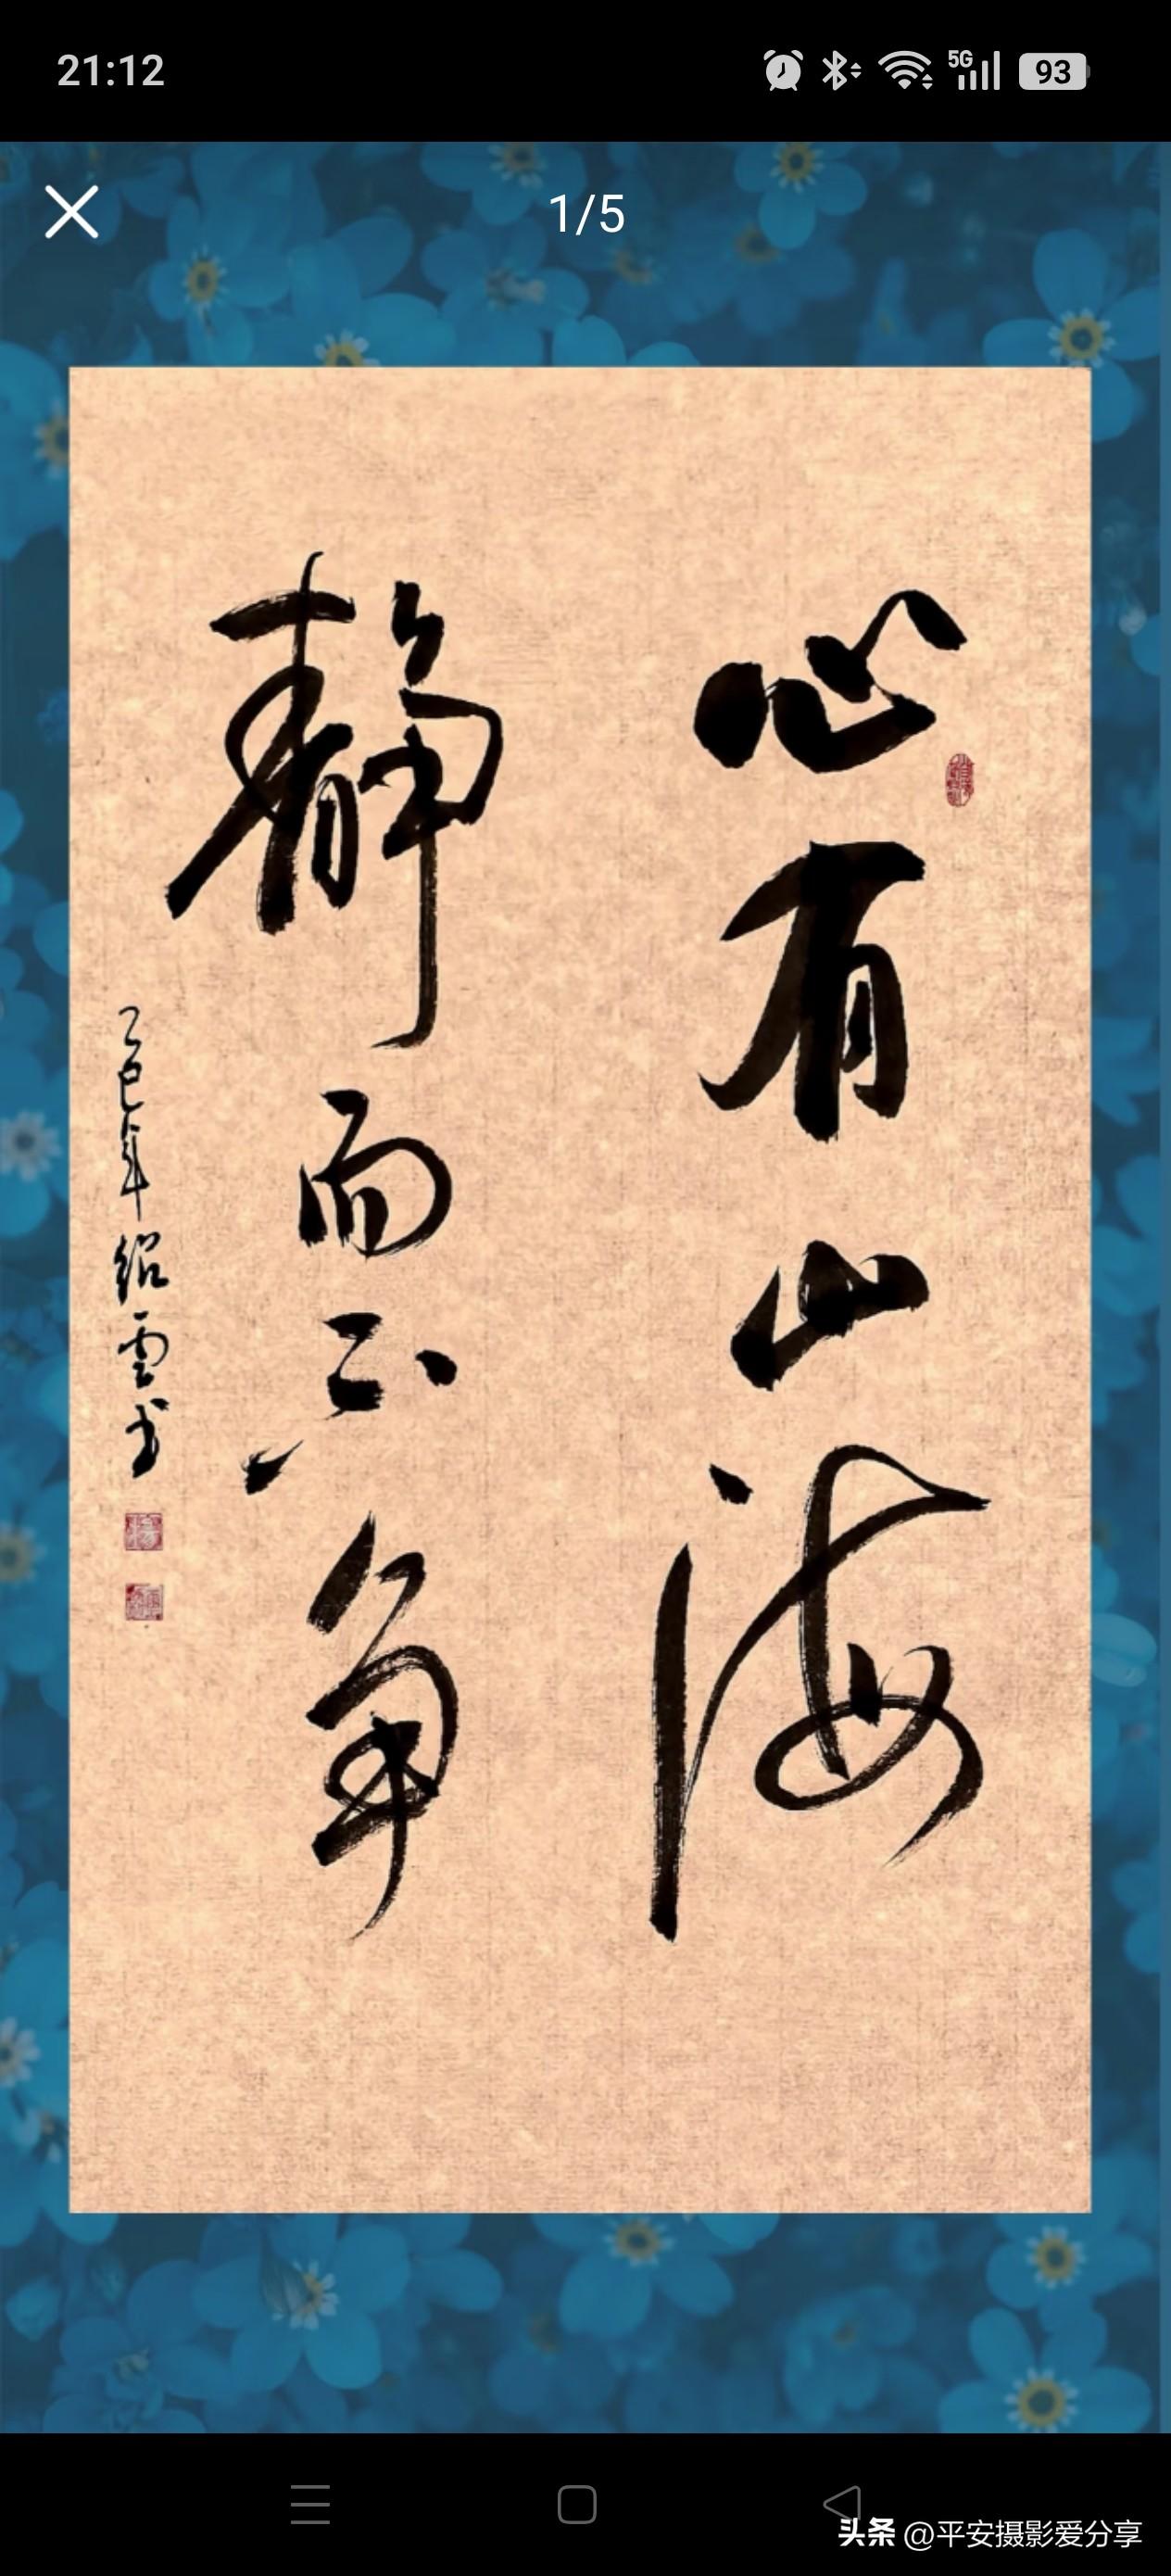 21:12
5G
93
1/5
心有山海
静而不争
乙巳年绍雲书
头条 @平安摄影爱分享